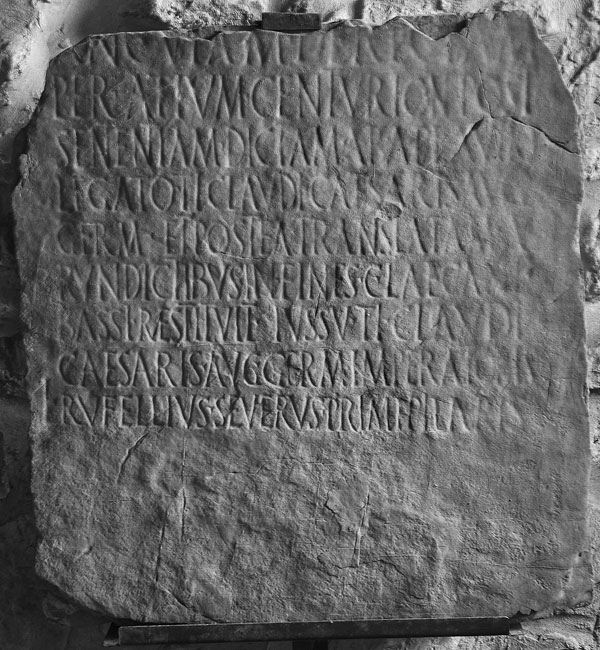 VIAM DERECTAM
PER·ATIVM·CENTVRION·POST
SENTENTIAM·DICTAM·AB·A·PLAVTIO
LEGATO·TI·CLAVDI·CAESARIS·AVG
GERM·ET·POSTEA·TRANSLATAM·A
RVNDICTIBVS·IN·FINES·C·LAECANI
BASSI·RESTITVIT·IVSSV·TI·CLAVDI
CAESARIS·AVG·GERM·IMPERATORIS
L·RVFELLIVS·SEVERVS·PRIMIPILARIS